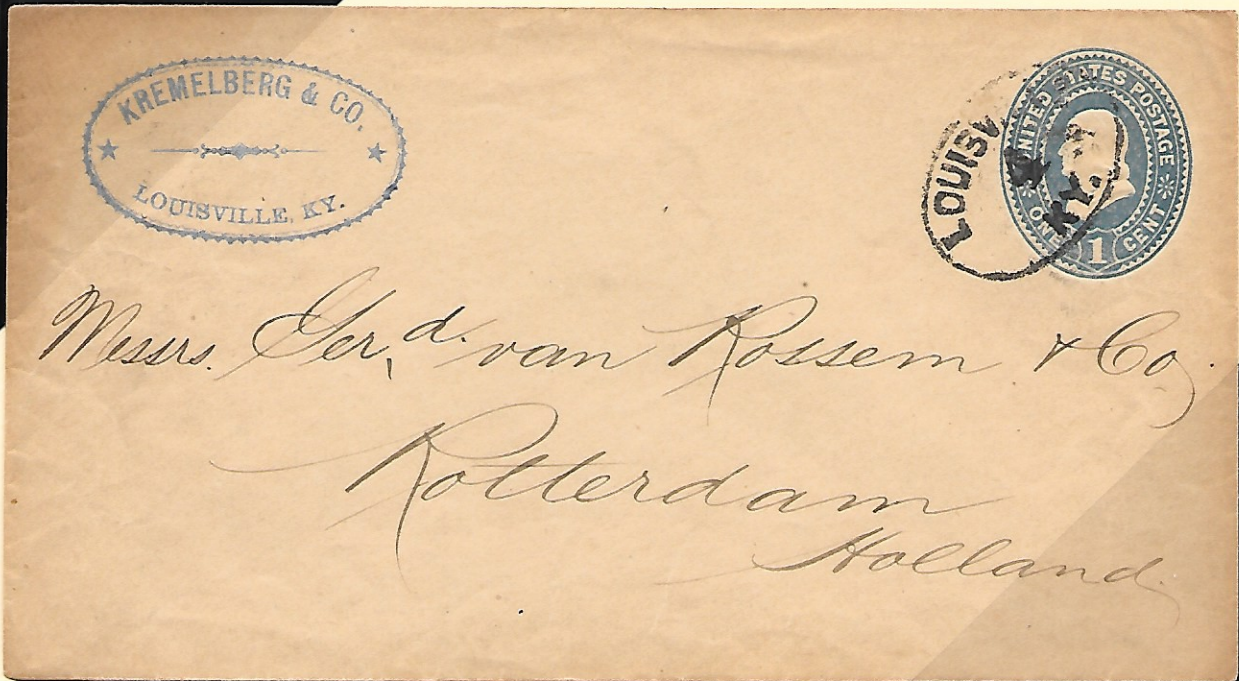 KREMELBERG & CO.
LOUISVILLE, KY.
UNITED STATES POSTAGE
ONE 1 CENT
LOUISV
KY.
Messrs. Ger.d. van Rossem & Co.
Rotterdam
Holland.